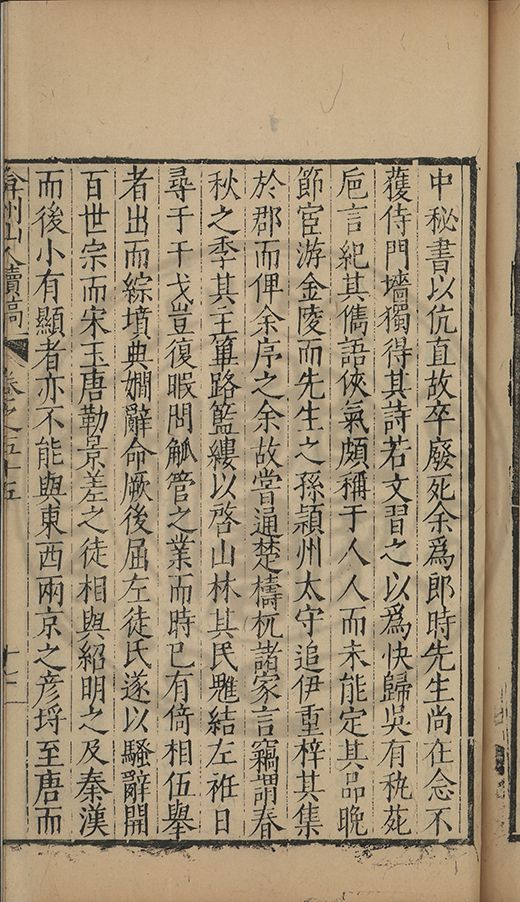 中秘書以伉直故卒廢死余爲郎時先生尚在念不
獲侍門墻獨得其詩若文習之以爲快歸吳有秇苑
巵言紀其儁語俠氣頗稱于人人而未能定其品晚
節宦游金陵而先生之孫潁州太守追伊重梓其集
於郡而俾余序之余故嘗通楚檮杌諸家言竊謂春
秋之季其王篳路籃縷以啓山林其民雕結左袵日
尋于干戈豈復暇問觚管之業而時已有倚相伍舉
者出而綜墳典嫺辭命厥後屈左徒氏遂以騷辭開
百世宗而宋玉唐勒景差之徒相與紹明之及秦漢
而後小有顯者亦不能與東西兩京之彦埒至唐而
弇州山人續稿 卷之五十五